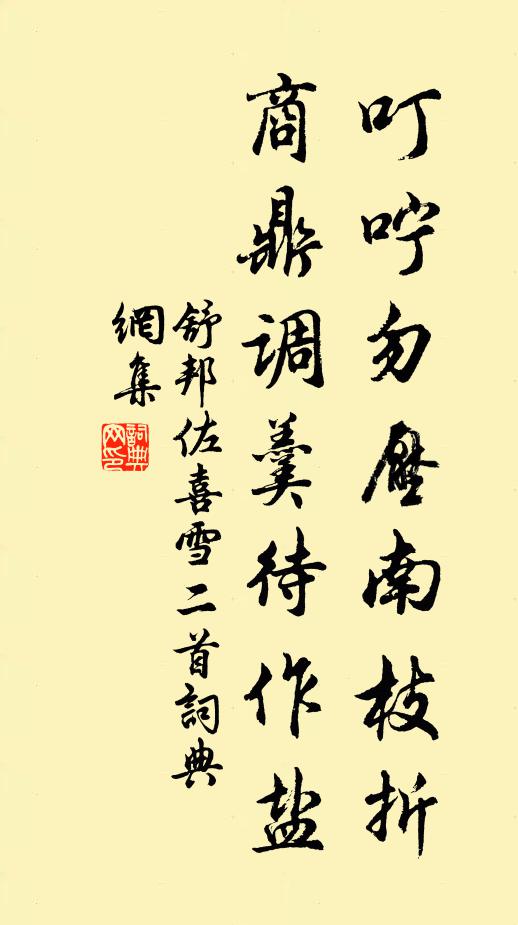 叮咛勿压南枝折
商鼎调羹待作盐
舒邦佐喜雪二首詞典
網集
詞典
网印